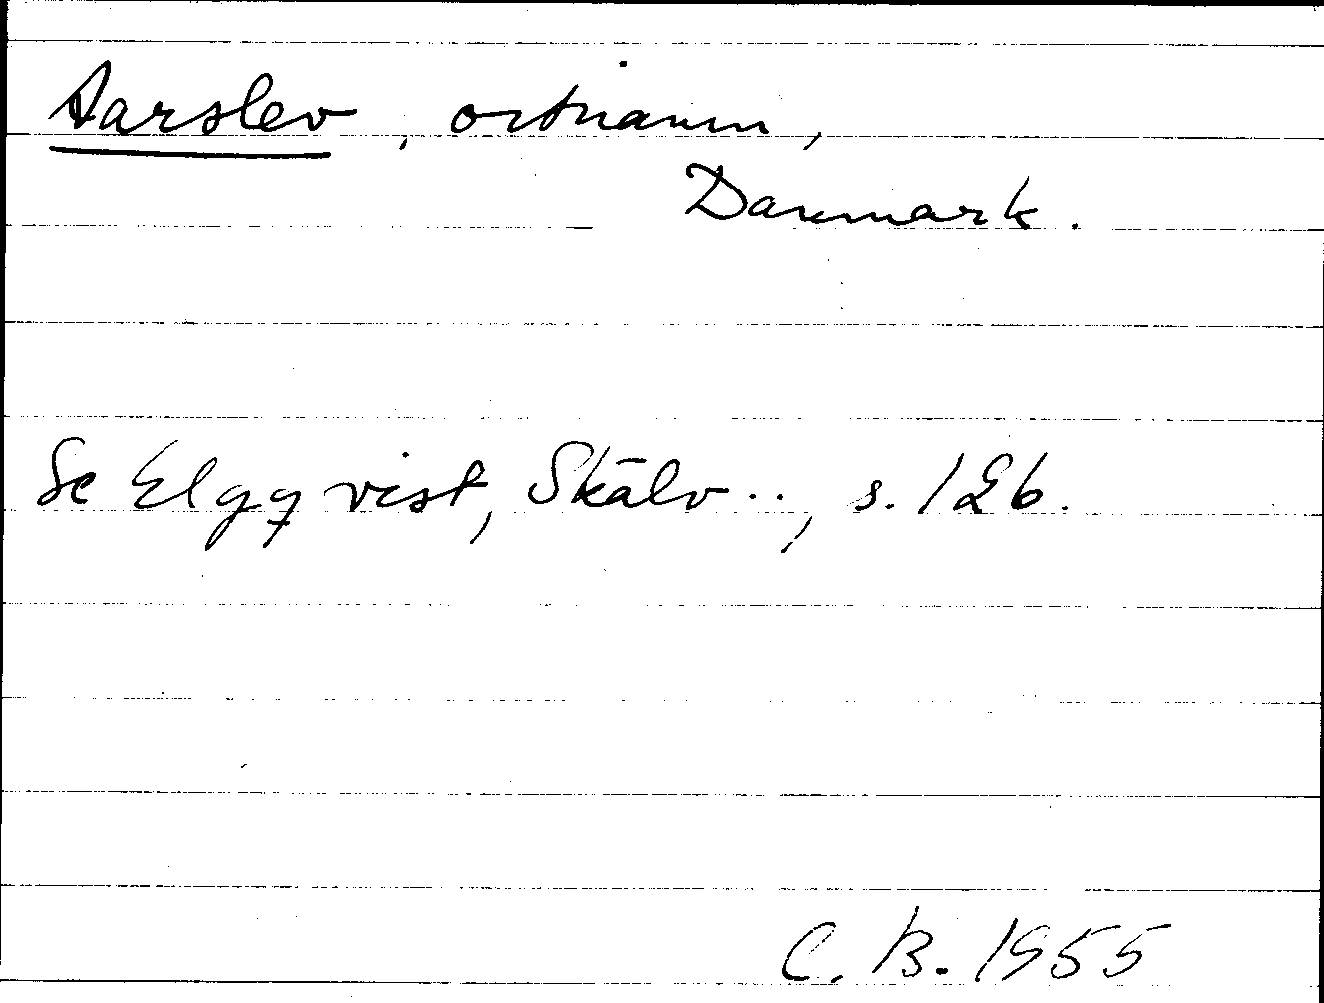 Aarslev, ortnamn,
Danmark.
Se Elgqvist, Skälv.., s. 126.
C. B. 1955